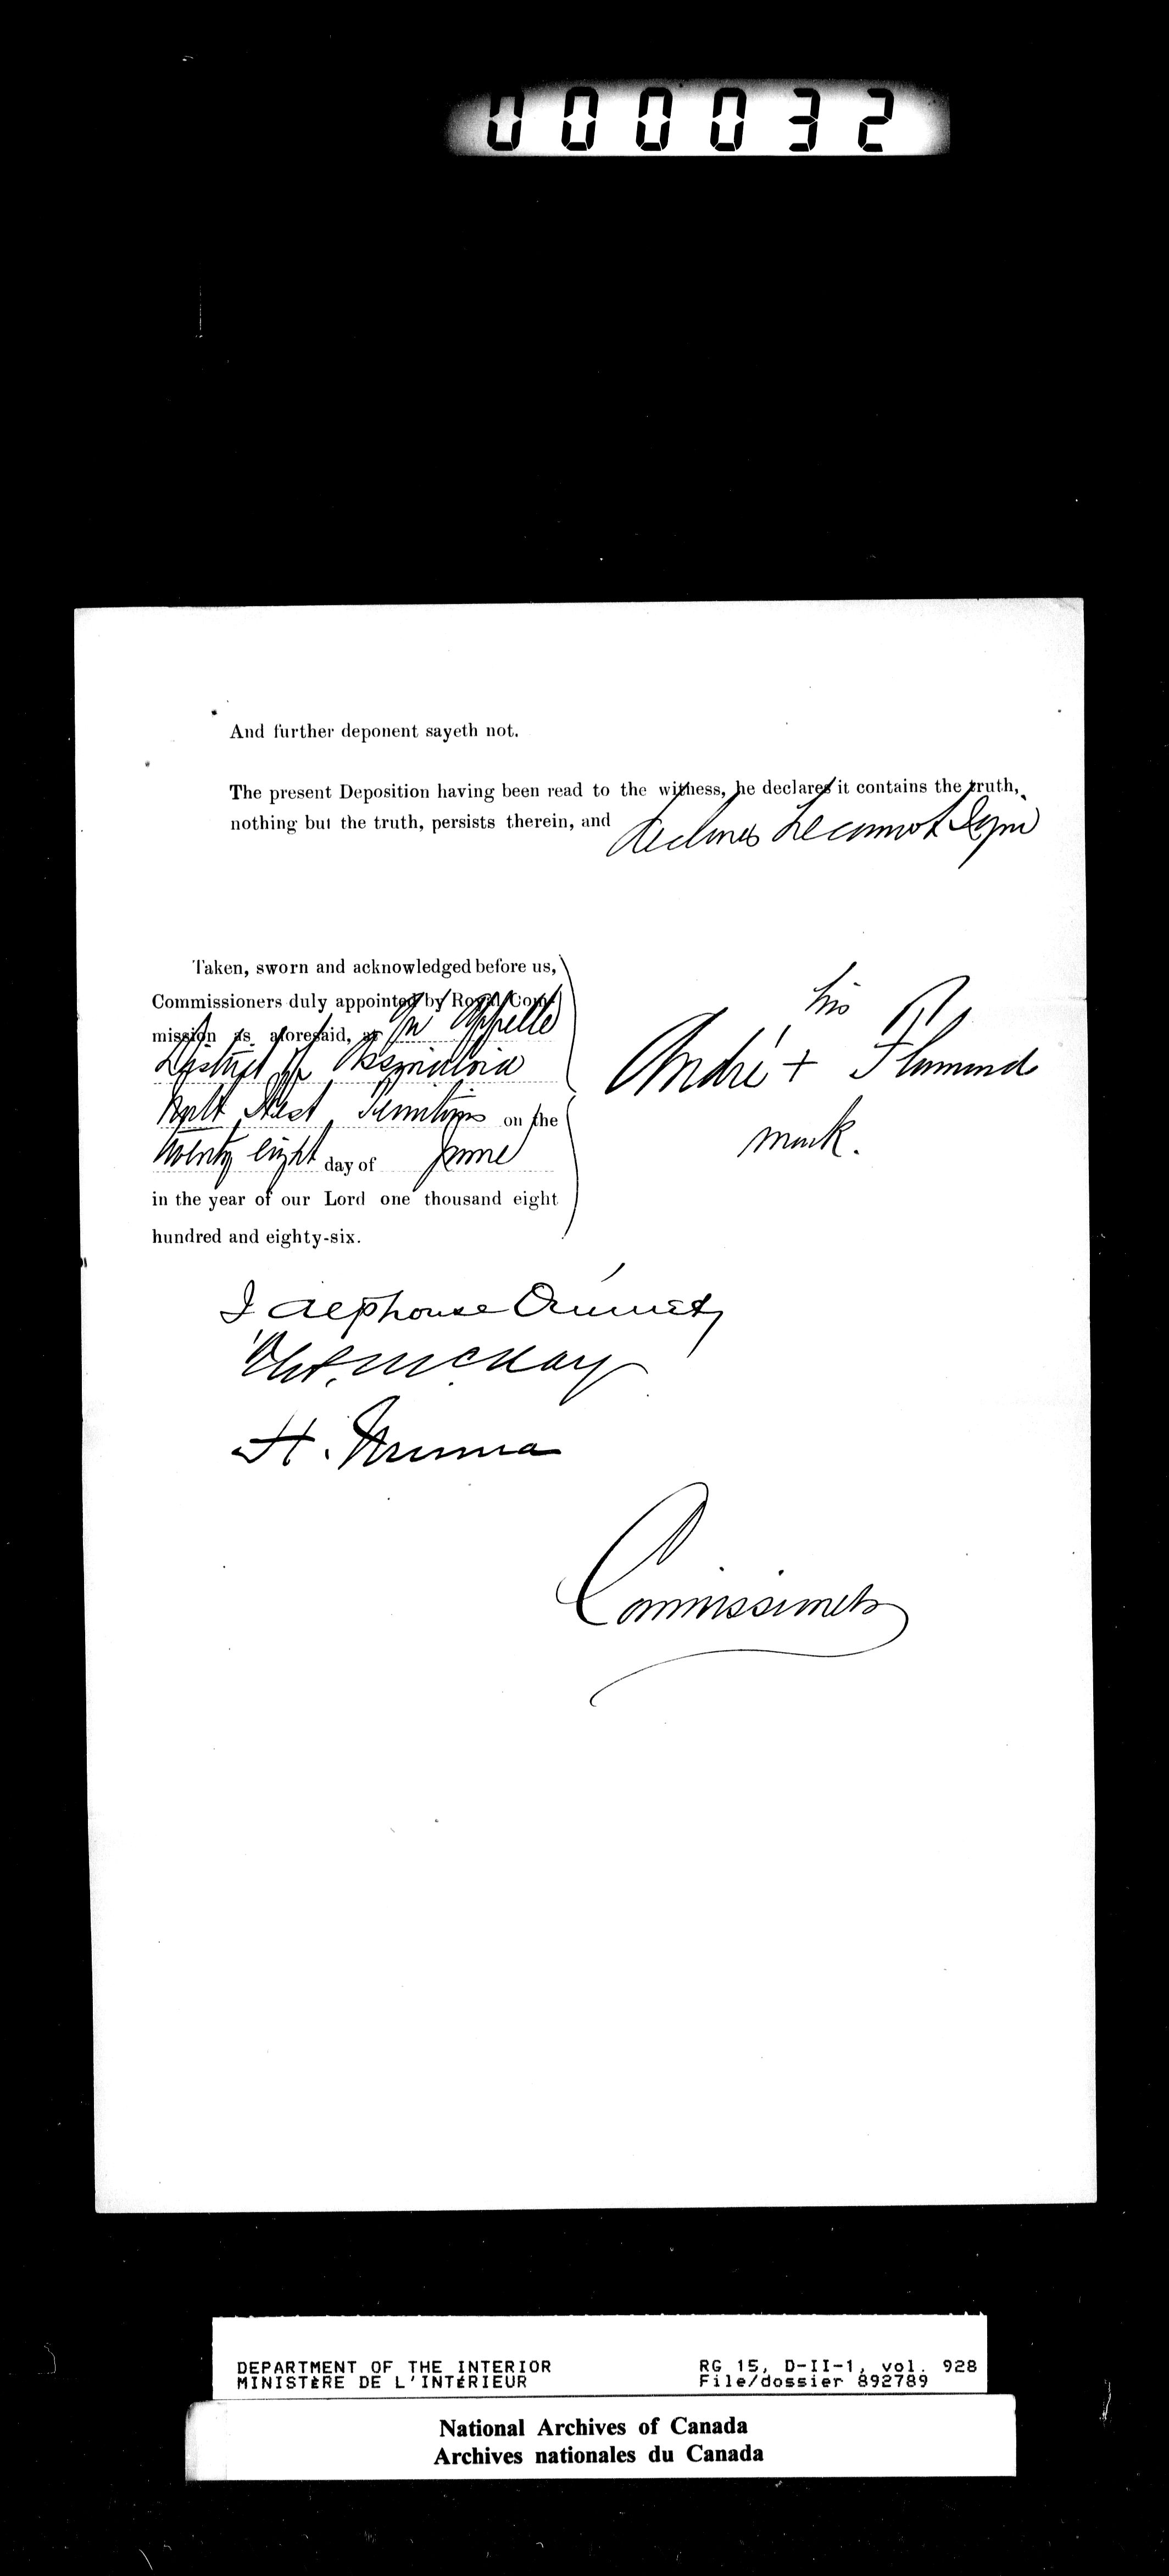 000032
And further deponent sayeth not.
The present Deposition having been read to the witness, he declares it contains the truth,
nothing but the truth, persists therein, and declares he cannot sign
Taken, sworn and acknowledged before us,
Commissioners duly appointed by Royal Com-
mission as aforesaid, at Qu'Appelle
District of Assiniboia
North West Territories on the
twenty eight day of June
in the year of our Lord one thousand eight
hundred and eighty-six.
his
André + Flamand
mark.
J Alphonse Ouimet
McKay
H.
Commissioners
DEPARTMENT OF THE INTERIOR RG 15, D-II-1, vol. 928
MINISTÈRE DE L'INTÉRIEUR File/dossier 892789
National Archives of Canada
Archives nationales du Canada